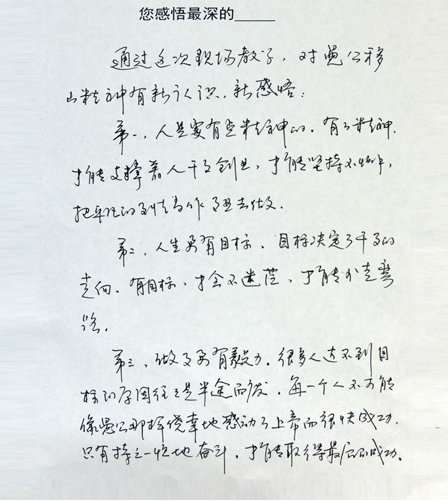 您感悟最深的____
通过这次现场教学，对愚公移
山精神有新认识，新感悟：
第一，人是要有些精神的，有了精神，
才能支撑着人干事创业，才能坚持不懈，
把单位的事情当作事业去做。
第二，人生要有目标，目标决定了干事的
走向，有目标，才会不迷茫，才能少走弯
路。
第三，做事要有毅力，很多人达不到目
标的原因往往是半途而废，每一个人不可能
像愚公那样侥幸地感动了上帝而很快成功，
只有持之一恒地奋斗，才能取得最后的成功。